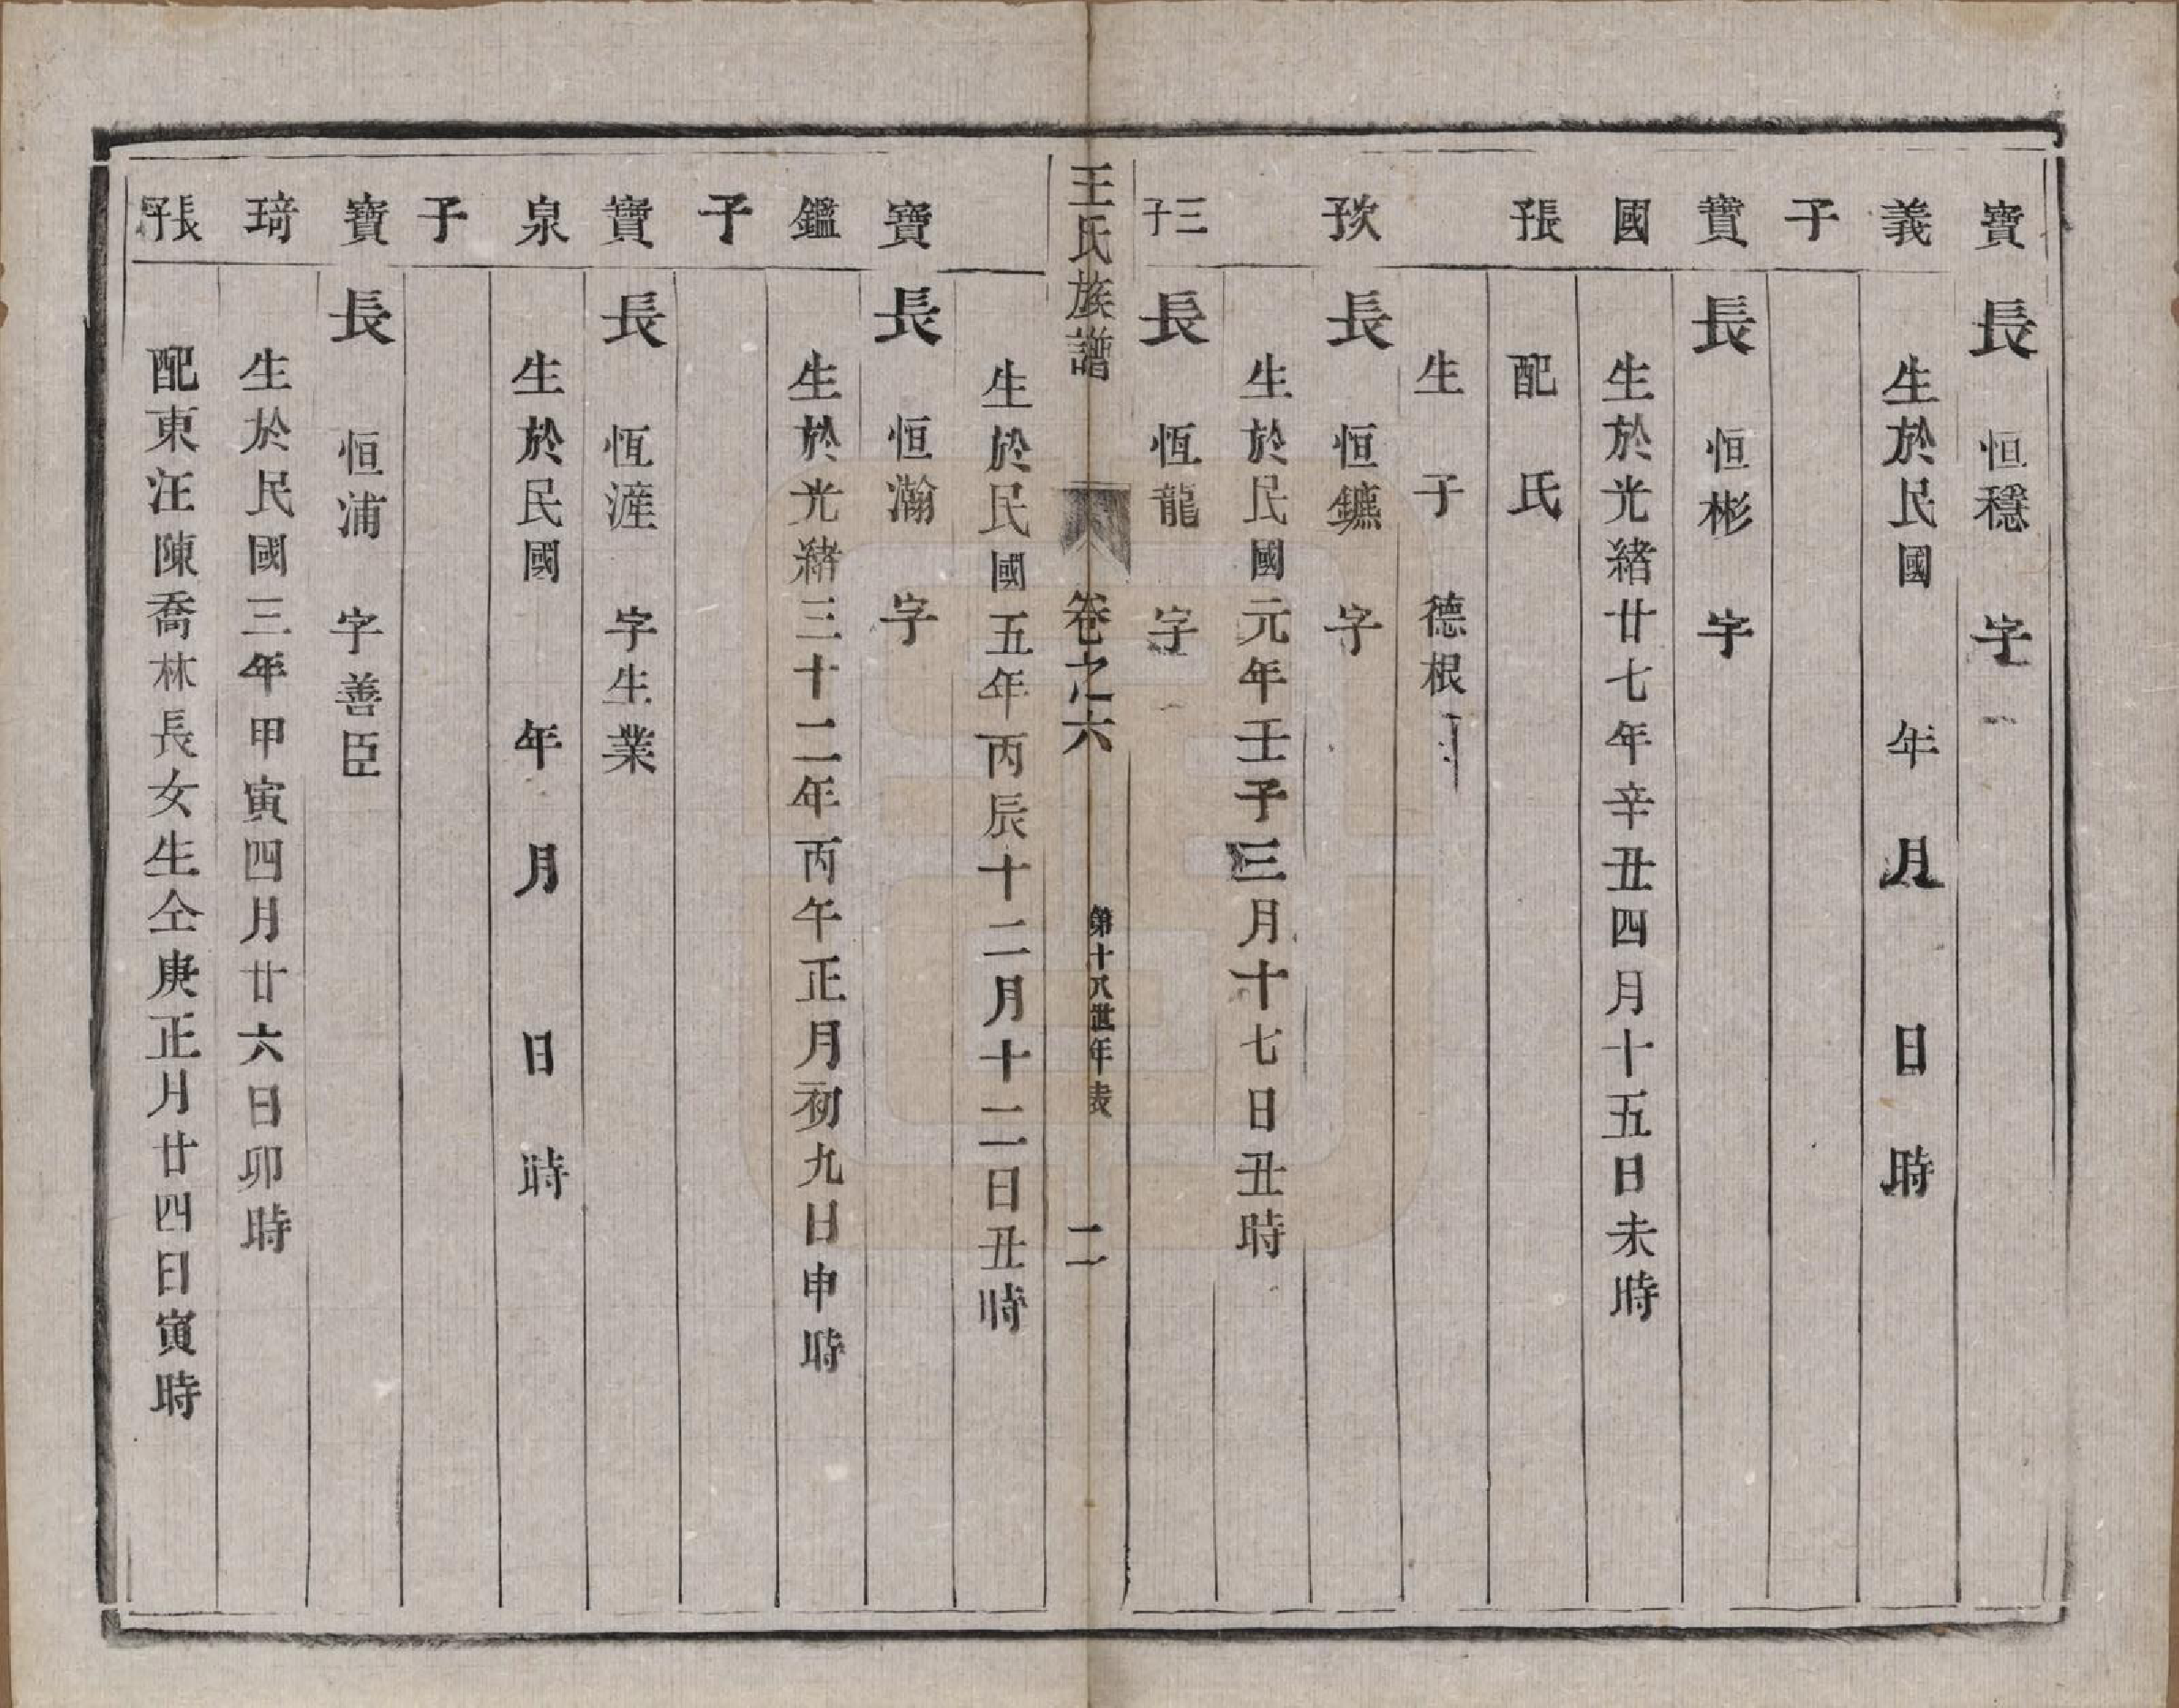 寶 長 恒穩 字
義 生於民國 年 月 日 時
子
寶 長 恒彬 字
國 生於光緒廿七年辛丑四月十五日未時
長子 配 氏
生 子 德根
次子 長 恒鑣 字
生於民國元年壬子三月十七日丑時
三子 長 恆龍 字
王氏族譜 卷之六 第十八世年表 二
生於民國五年丙辰十二月十二日丑時
寶 長 恒瀚 字
鑑 生於光緒三十二年丙午正月初九日申時
子
寶 長 恆滻 字生業
泉 生於民國 年 月 日 時
子
寶 長 恒浦 字善臣
琦 生於民國三年甲寅四月廿六日卯時
長子 配東汪陳喬林長女生仝庚正月廿四日寅時